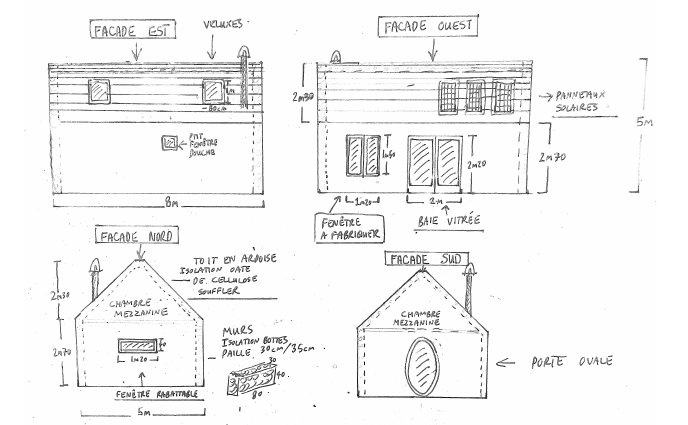 FAÇADE EST
VELUXES
1m
80cm
PTIT
FENÊTRE
DOUCHE
8m
FAÇADE OUEST
2m30
PANNEAUX
SOLAIRES
5m
2m70
1m20
2m
FENÊTRE
A FABRIQUER
BAIE VITRÉE
FAÇADE NORD
TOIT EN ARDOISE
ISOLATION OATE
DE CELLULOSE
SOUFFLER
2m30
CHAMBRE
MEZZANINE
2m70
1m20
MURS
ISOLATION BOTTES
PAILLE 30cm/35cm
30
40
80
FENÊTRE RABATTABLE
5m
FAÇADE SUD
CHAMBRE
MEZZANINE
PORTE OVALE